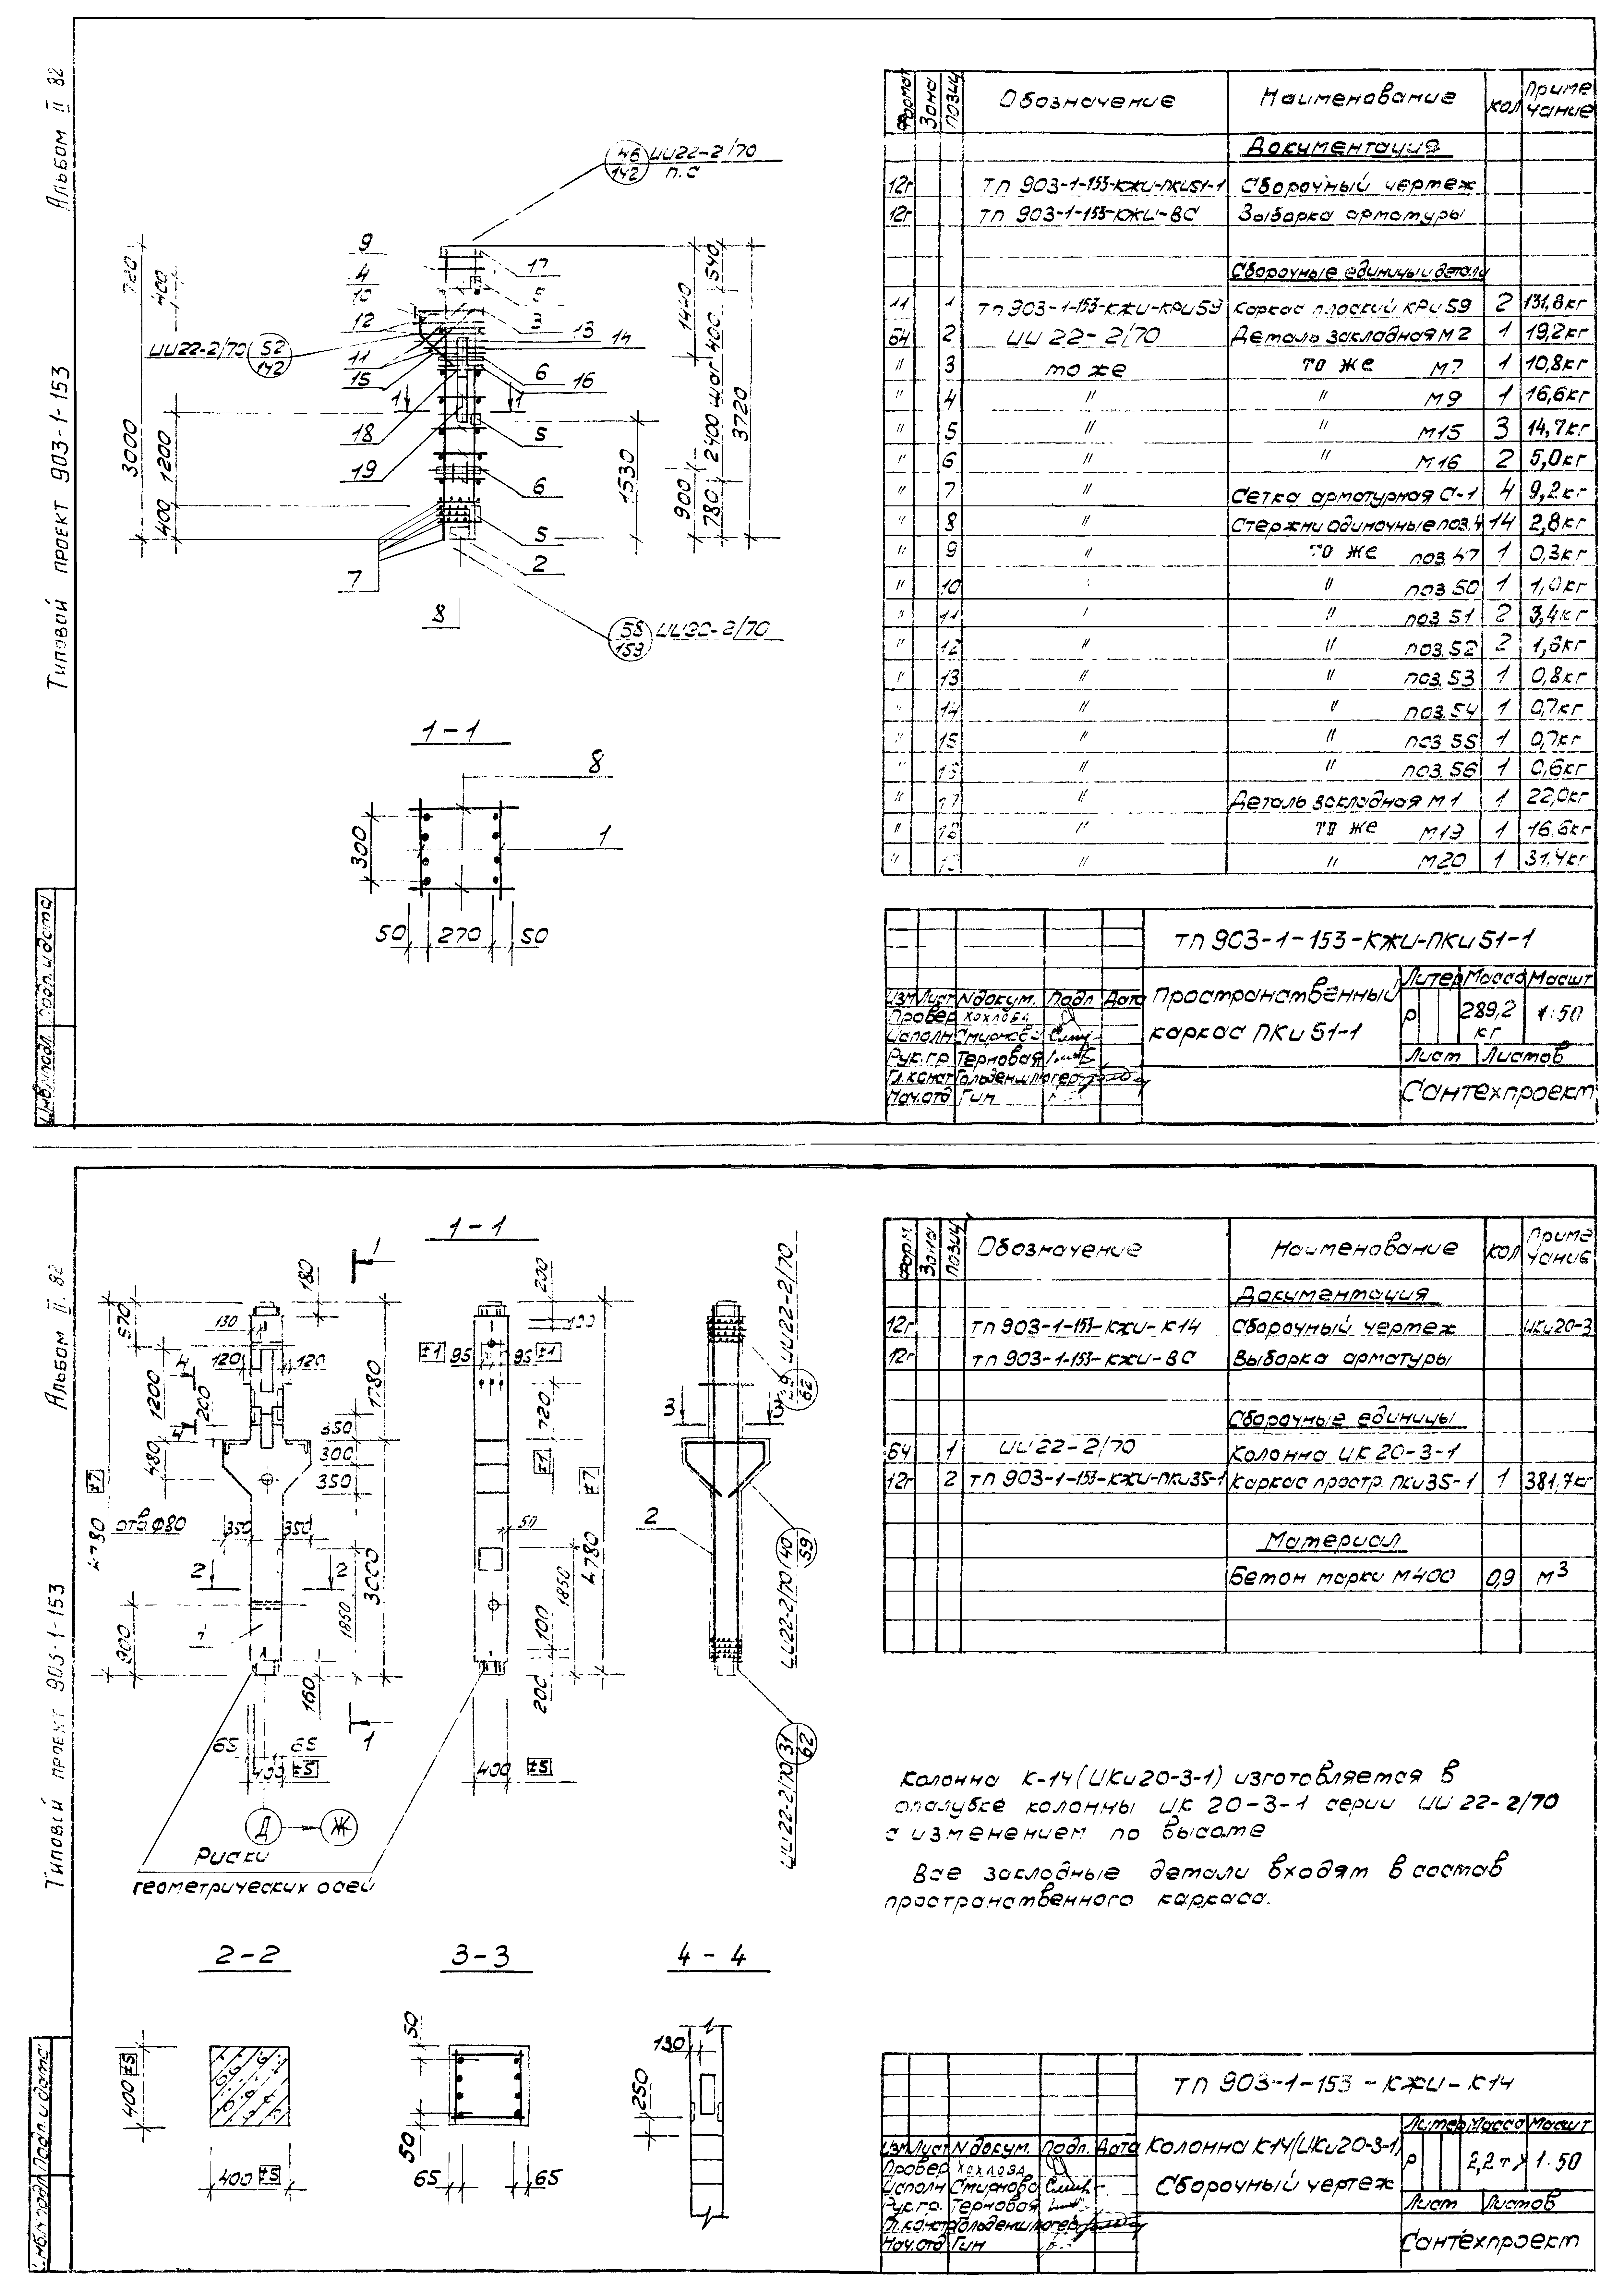 Альбом II 82
Типовой проект 903-1-153
Инв.N подл. Подп. и дата
46 ИИ22-2/70
142 п.с
9
4
10
12
ИИ22-2/70 52
142
11
15
18
19
7
8
17
5
3
13
14
6
16
5
6
5
2
58 ИИ20-2/70
153
720
400
3000
1200
400
1440
540
400
2400 шаг
3720
1530
900
780
1 1
1-1
8
1
300
50 270 50
Формат Зона Позиц Обозначение Наименование Кол Примечание
Документация
12г ТП 903-1-153-КЖИ-ПКИ51-1 Сборочный чертеж
12г ТП 903-1-153-КЖИ-ВС Выборка арматуры
Сборочные единицы и детали
11 1 ТП 903-1-153-КЖИ-КРИ59 Каркас плоский КРИ59 2 131,8кг
64 2 ИИ 22-2/70 Деталь закладная М2 1 19,2кг
" 3 то же то же М7 1 10,8кг
" 4 " " М9 1 16,6кг
" 5 " " М15 3 14,7кг
" 6 " " М16 2 5,0кг
" 7 " Сетка арматурная С-1 4 9,2кг
" 8 " Стержни одиночные поз.4 14 2,8кг
" 9 " то же поз.47 1 0,3кг
" 10 " " поз 50 1 1,0кг
" 11 " " поз 51 2 3,4кг
" 12 " " поз.52 2 1,6кг
" 13 " " поз.53 1 0,8кг
" 14 " " поз.54 1 0,7кг
" 15 " " поз 55 1 0,7кг
" 16 " " поз.56 1 0,6кг
" 17 " Деталь закладная М1 1 22,0кг
" " то же М19 1 16.6кг
" " " М20 1 31.4кг
ТП 903-1-153-КЖИ-ПКИ51-1
Изм Лист N докум. Подп Дата
Провер Хохлова
Исполн Смирнова
Рук.гр Терновая
Гл.конст Гольденшлюгер
Нач.отд Гин
Пространственный
каркас ПКИ 51-1
Литер Масса Масшт
Р 289,2 кг 1:50
Лист Листов
Сантехпроект
Альбом II. 82
Типовой проект 903-1-153
Инв.N подл. Подп. и дата
1-1
570
180
130
120 120
4
1200
200
4
480
1780
350
300
350
±7
4780
отв. Ф80
350 350
2 2
3000
1850
900
1
160
1
1
65 65
400 ±5
Д Ж
Риски
геометрических осей
200
100
±1 95 95 ±1
720
±1
50
±7
4780
1850
100
200
400 ±5
ИИ22-2/70
62
3 3
2
ИИ22-2/70 40
59
ИИ22-2/70 31
62
2-2
3-3
4-4
400 ±5
400 ±5
50
50
65 65
130
250
Форм. Зона Позиц Обозначение Наименование Кол Примечание
Документация
12г ТП 903-1-153-КЖИ-К14 Сборочный чертеж ИКИ20-3
12г ТП 903-1-153-КЖИ-ВС Выборка арматуры
Сборочные единицы
БЧ 1 ИИ 22-2/70 Колонна ИК 20-3-1
12г 2 ТП 903-1-153-КЖИ-ПКИ35-1 Каркас простр. ПКИ35-1 1 381.7кг
Материал
Бетон марки М400 0,9 м3
Колонна К-14 (ИКИ20-3-1) изготовляется в
опалубке колонны ИК 20-3-1 серии ИИ 22-2/70
с изменением по высоте
Все закладные детали входят в состав
пространственного каркаса.
ТП 903-1-153-КЖИ-К14
Изм Лист N докум. Подп. Дата
Провер Хохлова
Исполн Смирнова
Рук.гр. Терновая
Гл.констр Гольденшлюгер
Нач.отд Гин
Колонна К14 (ИКИ20-3-1)
Сборочный чертеж
Литер Масса Масшт
Р 2,2т 1:50
Лист Листов
Сантехпроект